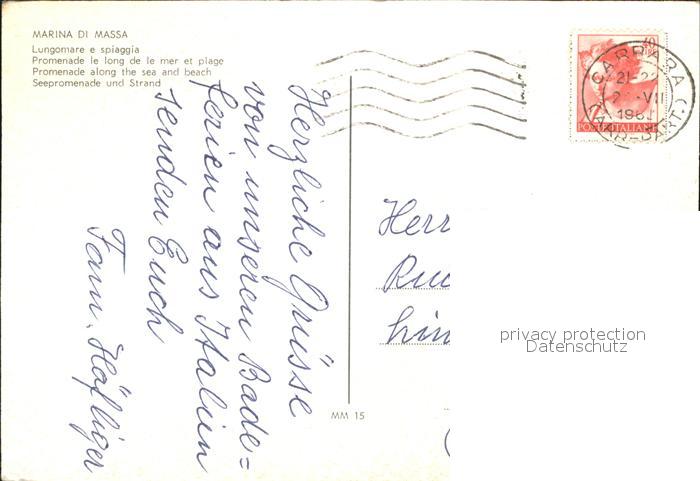 MARINA DI MASSA
Lungomare e spiaggia
Promenade le long de le mer et plage
Promenade along the sea and beach
Seepromenade und Strand
Herzliche Grüsse
von unseren Bade=
ferien aus Italien
senden Euch
Fam. Häfliger
MM 15
40
POSTE ITALIANE
CARRARA
21-22
VII
Herr
privacy protection
Datenschutz